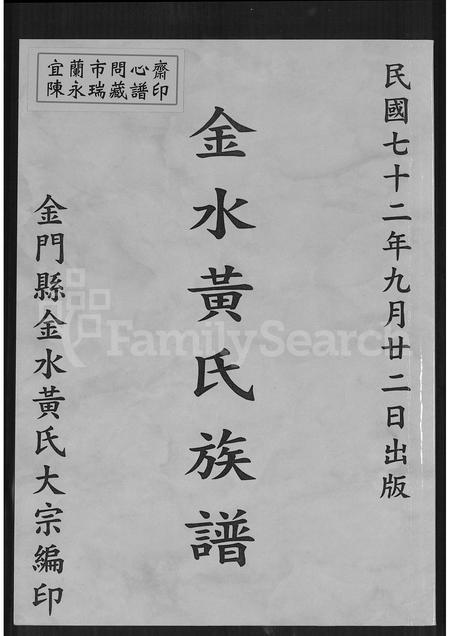 民國七十二年九月廿二日出版
金水黃氏族譜
金門縣金水黃氏大宗編印
宜蘭市問心齋
陳永瑞藏譜印
FamilySearch